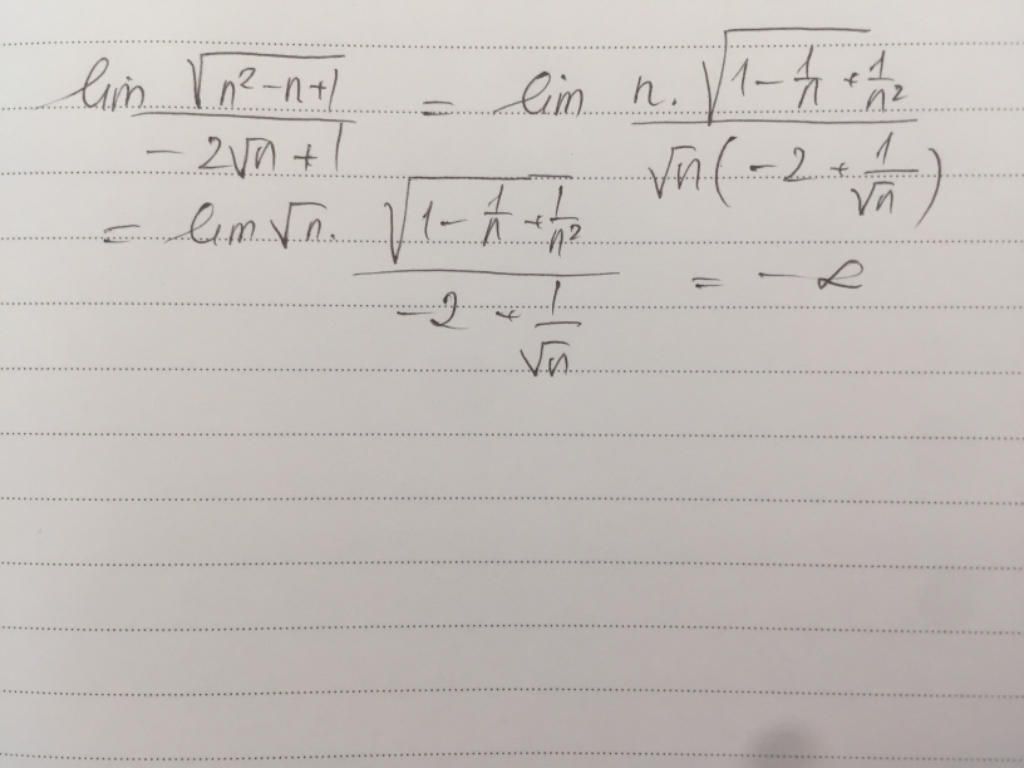 lim √(n² - n + 1) / (- 2√n + 1) = lim n. √(1 - 1/n + 1/n²) / (√n (- 2 + 1/√n))
= lim √n. √(1 - 1/n + 1/n²) / (- 2 + 1/√n) = - ∞